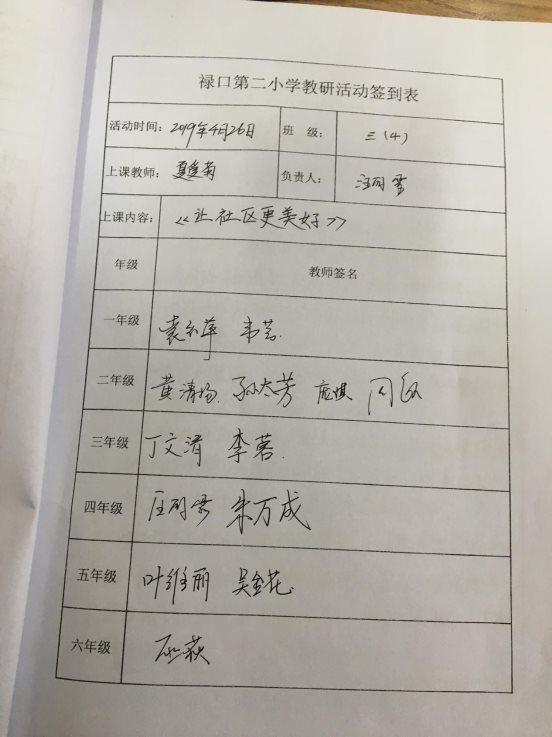 禄口第二小学教研活动签到表
活动时间：2019年4月26日 班 级： 三（4）
上课教师：夏爱菊 负责人：汪
上课内容：《让社区更美好》
年级 教师签名
一年级 袁 萍 韦芸
二年级 黄清杨 孙大芳
三年级 丁文清 李蓉
四年级 朱万成
五年级 叶维丽 吴金花
六年级